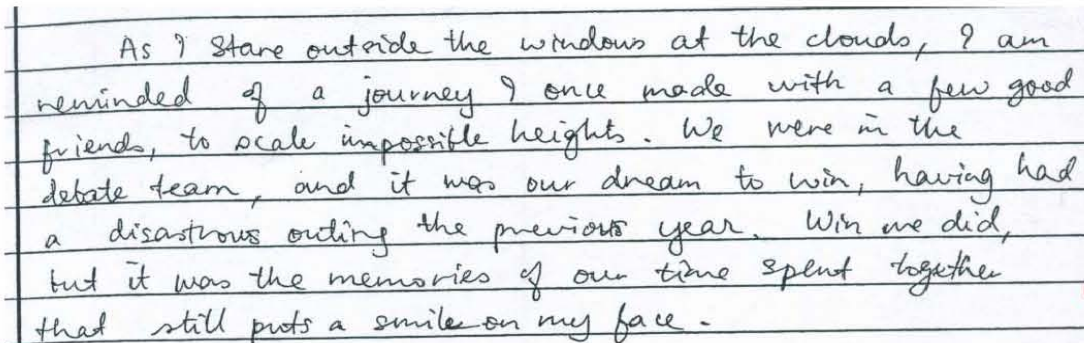 As I stare outside the windows at the clouds, I am
reminded of a journey I once made with a few good
friends, to scale impossible heights. We were in the
debate team, and it was our dream to win, having had
a disastrous outing the previous year. Win we did,
but it was the memories of our time spent together
that still puts a smile on my face.